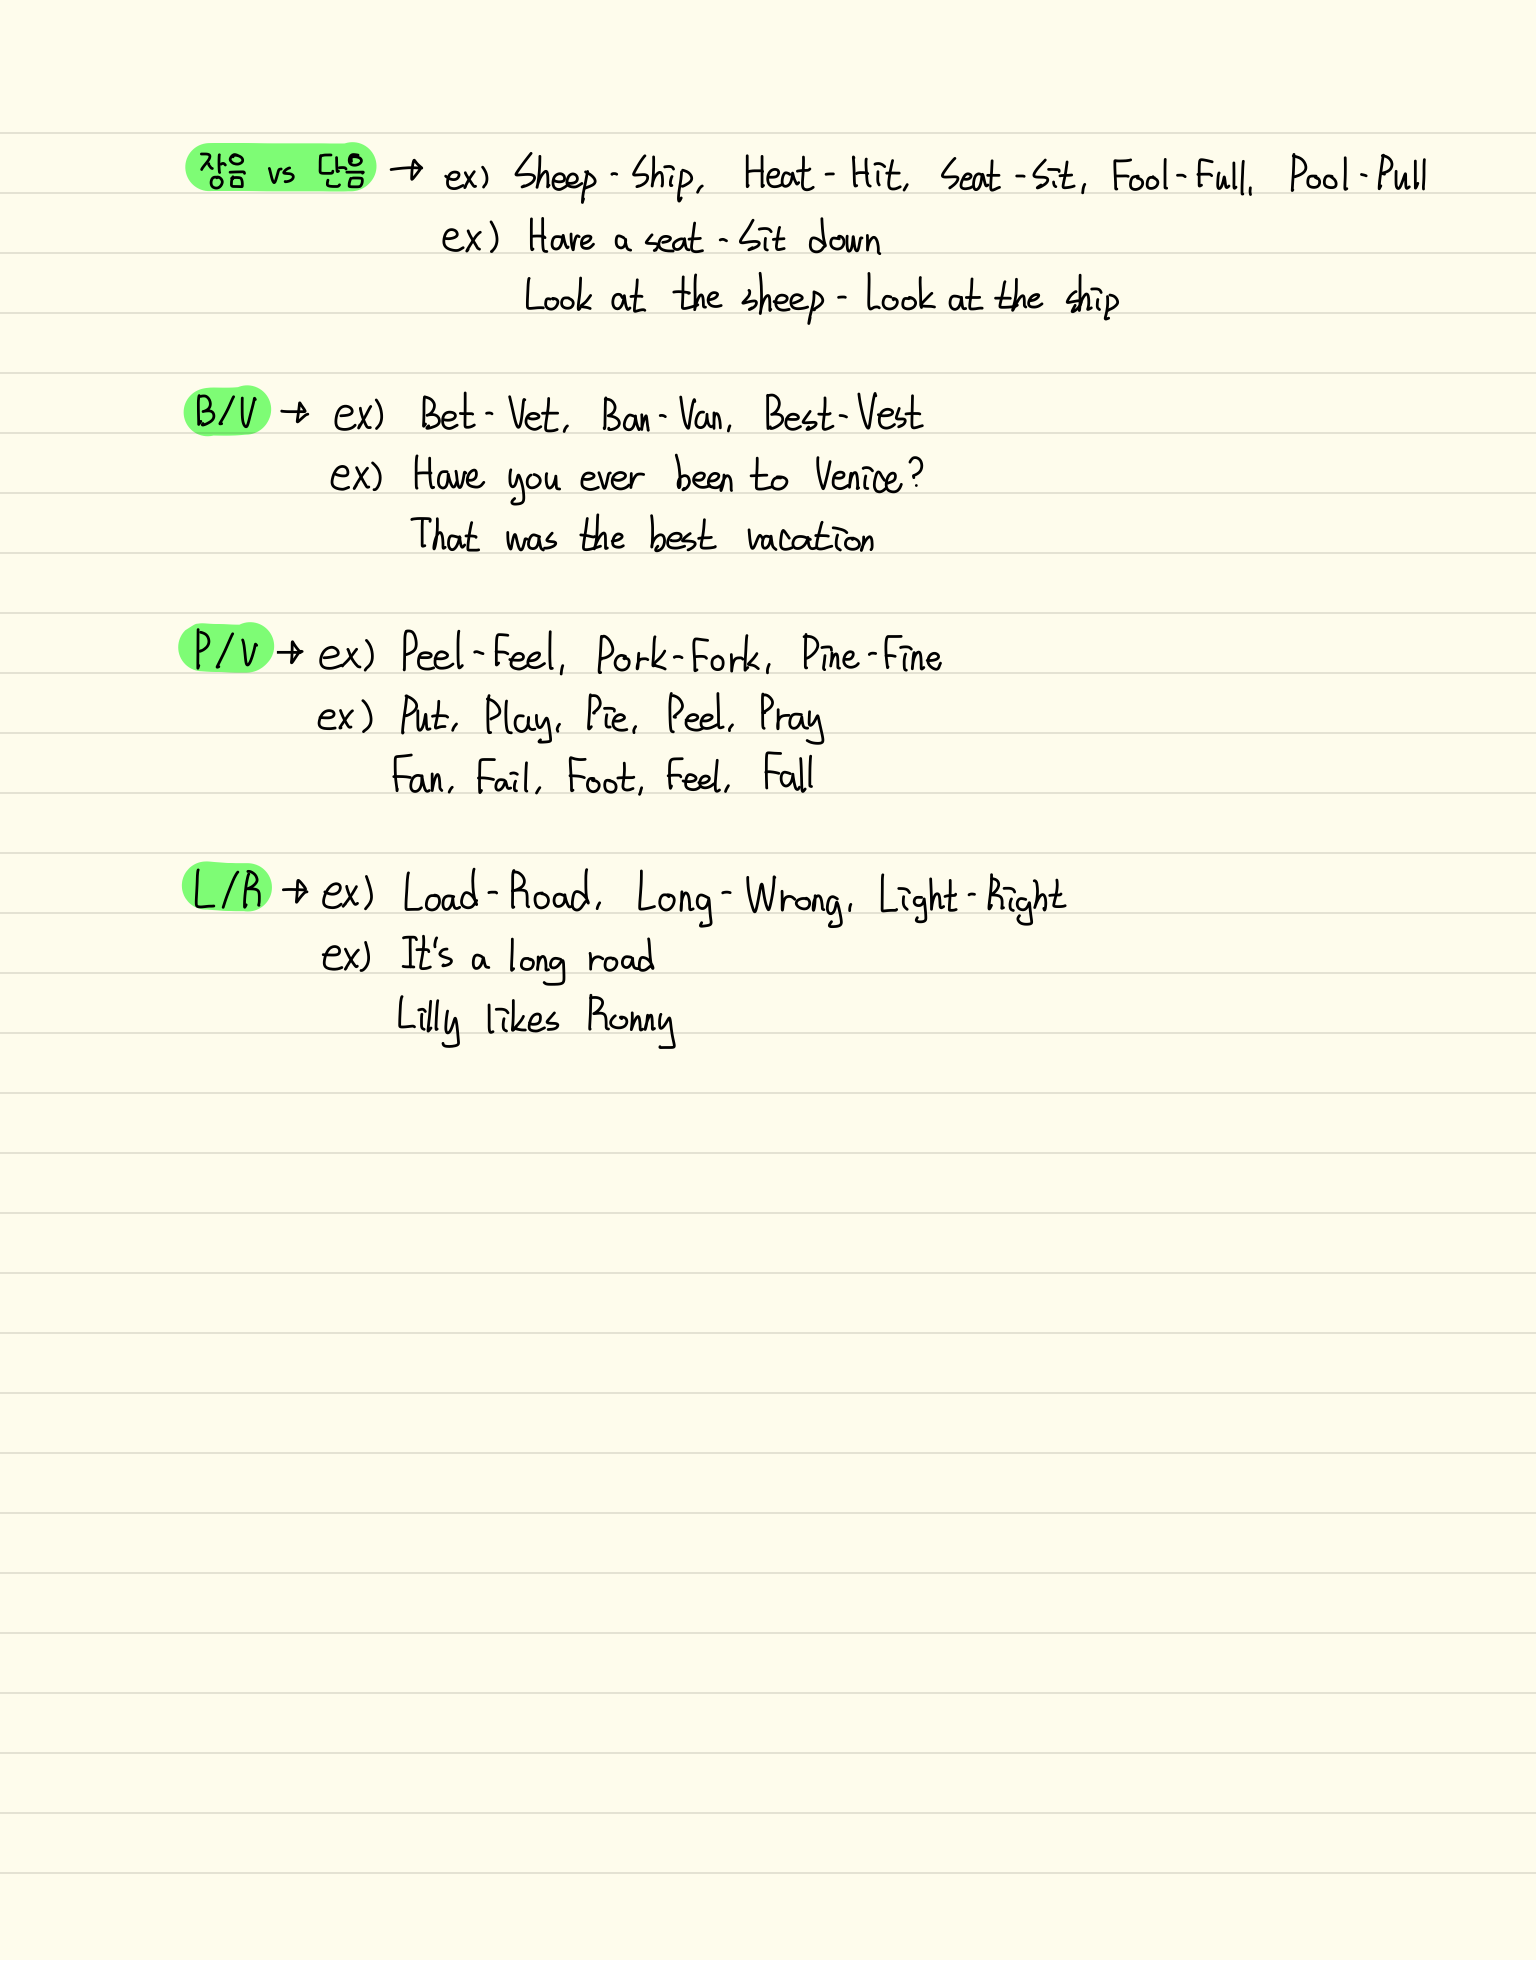 장음 vs 단음 → ex) Sheep - Ship, Heat - Hit, Seat - Sit, Fool - Full, Pool - Pull
ex) Have a seat - Sit down
Look at the sheep - Look at the ship
B/V → ex) Bet - Vet, Ban - Van, Best - Vest
ex) Have you ever been to Venice?
That was the best vacation
P/V → ex) Peel - Feel, Pork - Fork, Pine - Fine
ex) Put, Play, Pie, Peel, Pray
Fan, Fail, Foot, Feel, Fall
L/R → ex) Load - Road, Long - Wrong, Light - Right
ex) It's a long road
Lilly likes Ronny